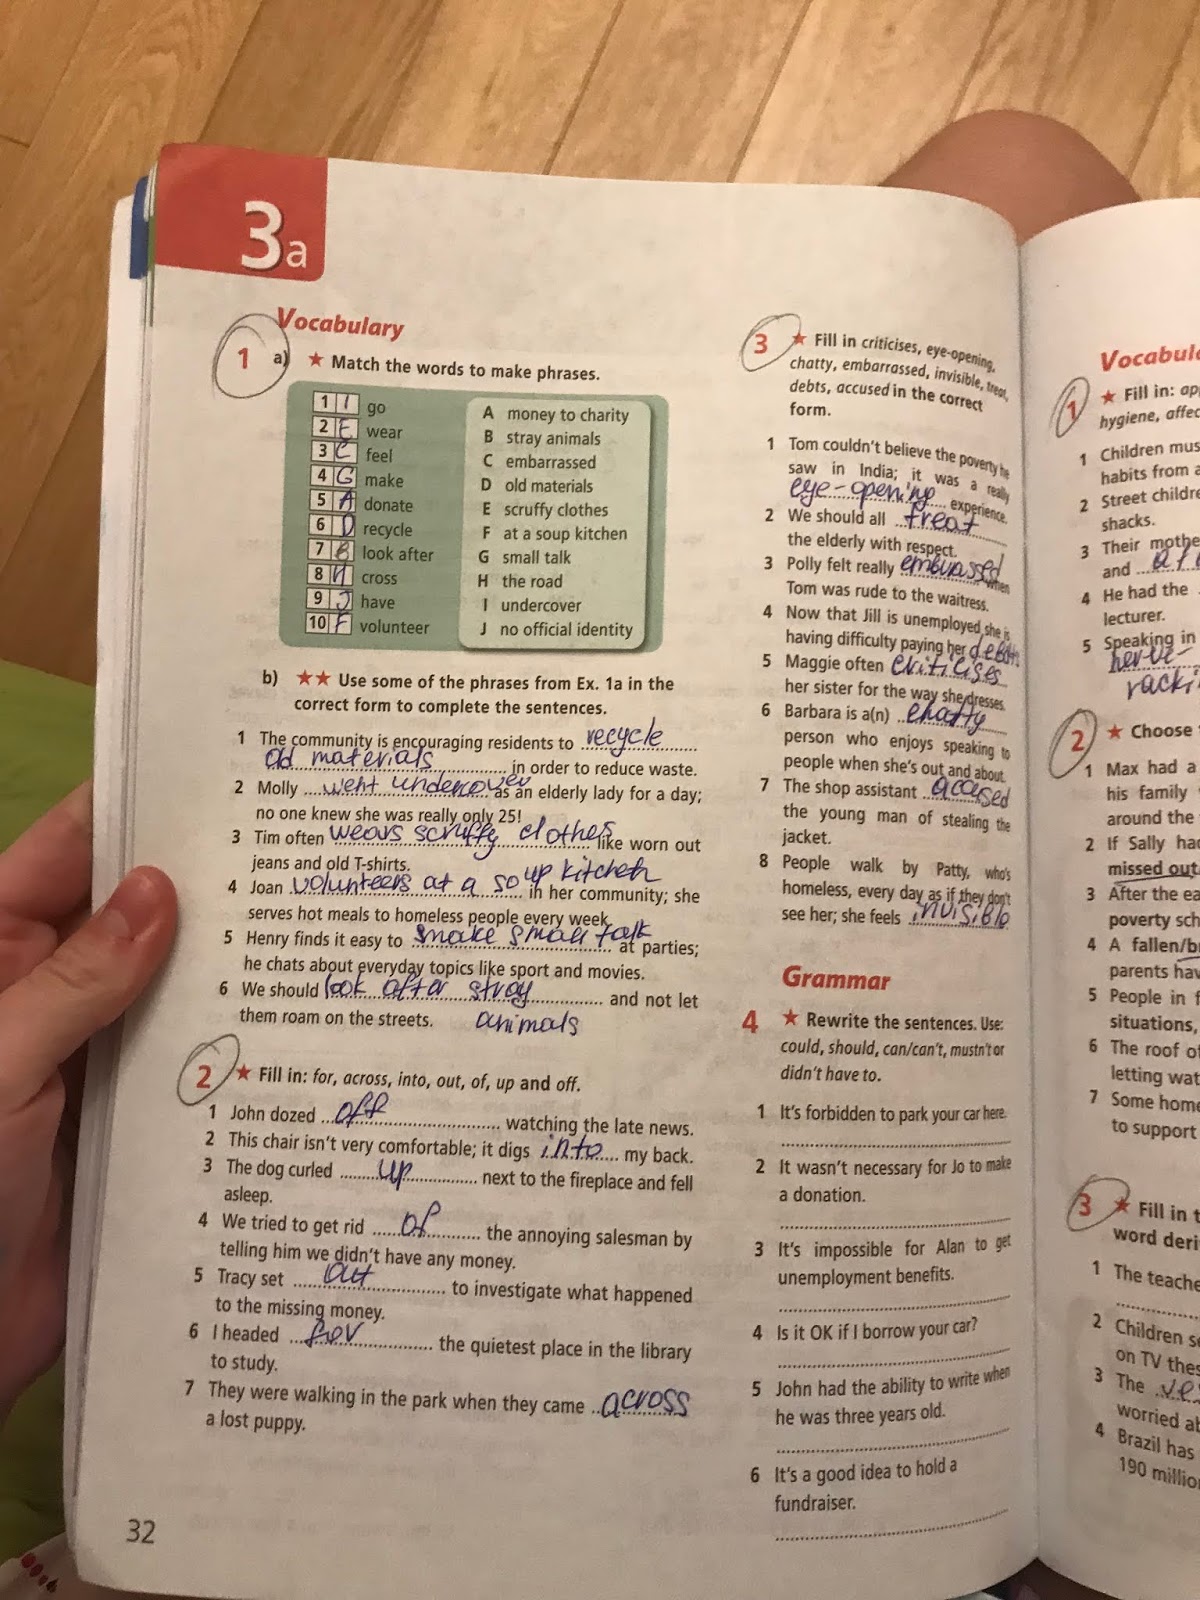 3a
Vocabulary
1 a) ★ Match the words to make phrases.
1 I go
2 E wear
3 C feel
4 G make
5 A donate
6 D recycle
7 B look after
8 H cross
9 J have
10 F volunteer
A money to charity
B stray animals
C embarrassed
D old materials
E scruffy clothes
F at a soup kitchen
G small talk
H the road
I undercover
J no official identity
b) ★★ Use some of the phrases from Ex. 1a in the
correct form to complete the sentences.
1 The community is encouraging residents to recycle
old materials in order to reduce waste.
2 Molly went undercover as an elderly lady for a day;
no one knew she was really only 25!
3 Tim often wears scruffy clothes like worn out
jeans and old T-shirts.
4 Joan volunteers at a soup kitchen in her community; she
serves hot meals to homeless people every week.
5 Henry finds it easy to make small talk at parties;
he chats about everyday topics like sport and movies.
6 We should look after stray and not let
them roam on the streets. animals
2 ★ Fill in: for, across, into, out, of, up and off.
1 John dozed off watching the late news.
2 This chair isn't very comfortable; it digs into my back.
3 The dog curled up next to the fireplace and fell
asleep.
4 We tried to get rid of the annoying salesman by
telling him we didn't have any money.
5 Tracy set out to investigate what happened
to the missing money.
6 I headed the quietest place in the library
to study.
7 They were walking in the park when they came across
a lost puppy.
32
3 ★ Fill in criticises, eye-opening,
chatty, embarrassed, invisible, treat,
debts, accused in the correct
form.
1 Tom couldn't believe the poverty he
saw in India; it was a really
eye-opening experience.
2 We should all treat
the elderly with respect.
3 Polly felt really embrassed when
Tom was rude to the waitress.
4 Now that Jill is unemployed she is
having difficulty paying her debts
5 Maggie often criticises
her sister for the way she dresses.
6 Barbara is a(n) chatty
person who enjoys speaking to
people when she's out and about.
7 The shop assistant accused
the young man of stealing the
jacket.
8 People walk by Patty, who's
homeless, every day as if they don't
see her; she feels invisible
Grammar
4 ★ Rewrite the sentences. Use:
could, should, can/can't, mustn't or
didn't have to.
1 It's forbidden to park your car here.
2 It wasn't necessary for Jo to make
a donation.
3 It's impossible for Alan to get
unemployment benefits.
4 Is it OK if I borrow your car?
5 John had the ability to write when
he was three years old.
6 It's a good idea to hold a
fundraiser.
1 ★ Fill in:
hygiene,
1 Children
habits from a
2 Street
shacks.
3 Their
and
4 He had the
lecturer.
5 Speaking in
nerve-
2 ★ Choose
1 Max had a
his family
around the
2 If Sally
missed out
3 After the
poverty
4 A fallen
parents
5 People in
situations,
6 The roof
letting
7 Some
to support
3 ★ Fill in
word
1 The
2 Children
on TV
3 The
worried
4 Brazil has
190